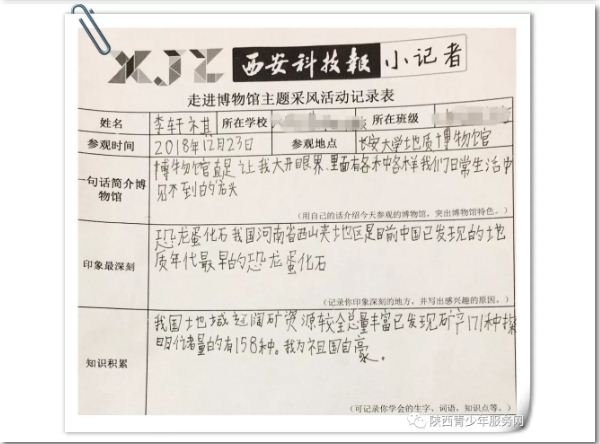 XJZ 西安科技報 小记者
走进博物馆主题采风活动记录表
姓名 李轩祺 所在学校 所在班级
参观时间 2018年12月23日 参观地点 长安大学地质博物馆
一句话简介博物馆 博物馆真是让我大开眼界、里面有各种各样我们日常生活中
见不到的石头
(用自己的话介绍今天参观的博物馆，突出博物馆特色。)
印象最深刻 恐龙蛋化石 我国河南省西山夹地区是目前中国已发现的地
质年代最早的恐龙蛋化石
(记录你印象深刻的地方，并写出感兴趣的原因。)
知识积累 我国土地域辽阔矿资源较全总量丰富已发现矿产171种探
明储量的有158种。我为祖国自豪。
(可记录你学会的生字，词语，知识点等。)
陕西青少年服务网